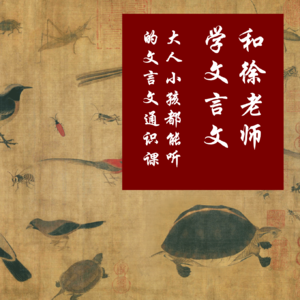 和徐老师
学文言文
大人小孩都能听
的文言文通识课